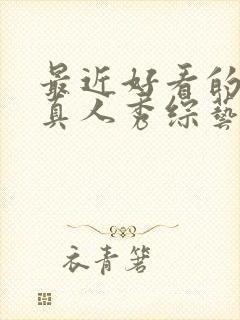 最近好看的
真人秀综艺
衣青箬